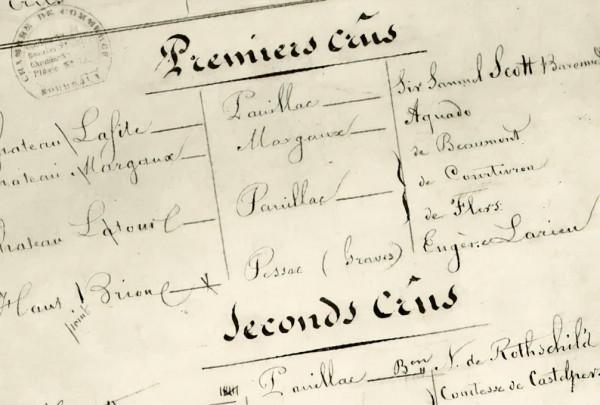 CHAMBRE DE COMMERCE
BORDEAUX
Premiers crûs
Chateau Lafite — Pauillac — Sir Samuel Scott
Chateau Margaux — Margaux — Aguado
de Beaumont
Chateau Latour — Pauillac — de Courtivron
de Flers.
Haut Brion — Pessac (Graves) Eugène Larieu
Seconds crûs
Pauillac — Bon N. de Rothschild
Comtesse de